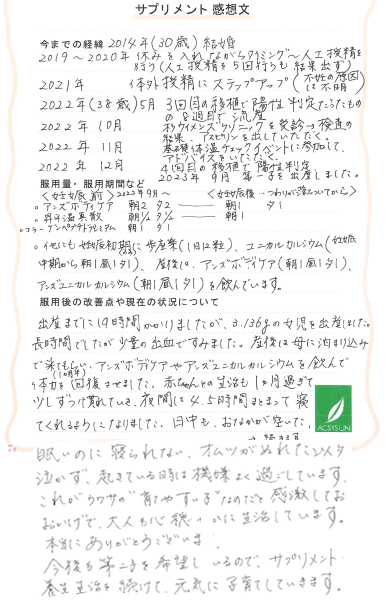 サプリメント 感想文
今までの経緯 2014年(30歳)結婚
2019～2020年 休みを入れながらタイミング～人工授精を
行う(人工授精を5回行うも結果出ず)
2021年 体外授精にステップアップ(不妊の原因は不明)
2022年(38歳)5月 3回目の移植で陽性判定だったもの
の8週目で流産
2022年 10月 杉ウイメンズクリニックを受診→検査の
結果、アスピリンを出していただく。
2022年 11月 基礎体温チェックイベントに参加して、
アドバイスをいただく。
2022年 12月 4回目の移植で陽性判定
2023年 9月 第一子を出産しました。
服用量・服用期間など
<妊娠前> 2022年9月～ <妊娠後…つわりが落ちついてから>
○アンズボディケア 朝2 夕2 ―― 朝1 夕1
○丹升温真散 朝1/2 夕1/2 ―― 朝1
○コラーゲンペプチドプレミアム 朝1 夕1
○他にも妊娠初期に歩産(1日12粒)、ユニカルカルシウム(妊娠
中期から朝1夕1)、産後は、アンズボディケア(朝1夕1)、
アンズユニカルカルシウム(朝1夕1)を飲んでいます。
服用後の改善点や現在の状況について
出産までに19時間かかりましたが、3,136gの女児を出産しました。
長時間でしたが少量の出血ですみました。産後は母に泊まり込み
で来てもらい、アンズボディケアやアンズユニカルカルシウムを飲んで
体力を回復させました。赤ちゃんとの生活も1ヶ月過ぎて
少しずつ慣れていき、夜間に4、5時間まとまって寝
てくれるようになりました。日中も、おなかが空いた、
ACSYSUN
眠いのに寝られない、オムツがぬれた
泣かず、起きている時は機嫌よく過ごしています。
これがウワサの"育てやすい子"なのだと感激してお
おかげで、大人も心穏やかに生活しています。
本当にありがとうございま
今後も第二子を希望しているので、サプリメント
養生生活を続けて、元気に子育てしていきます。